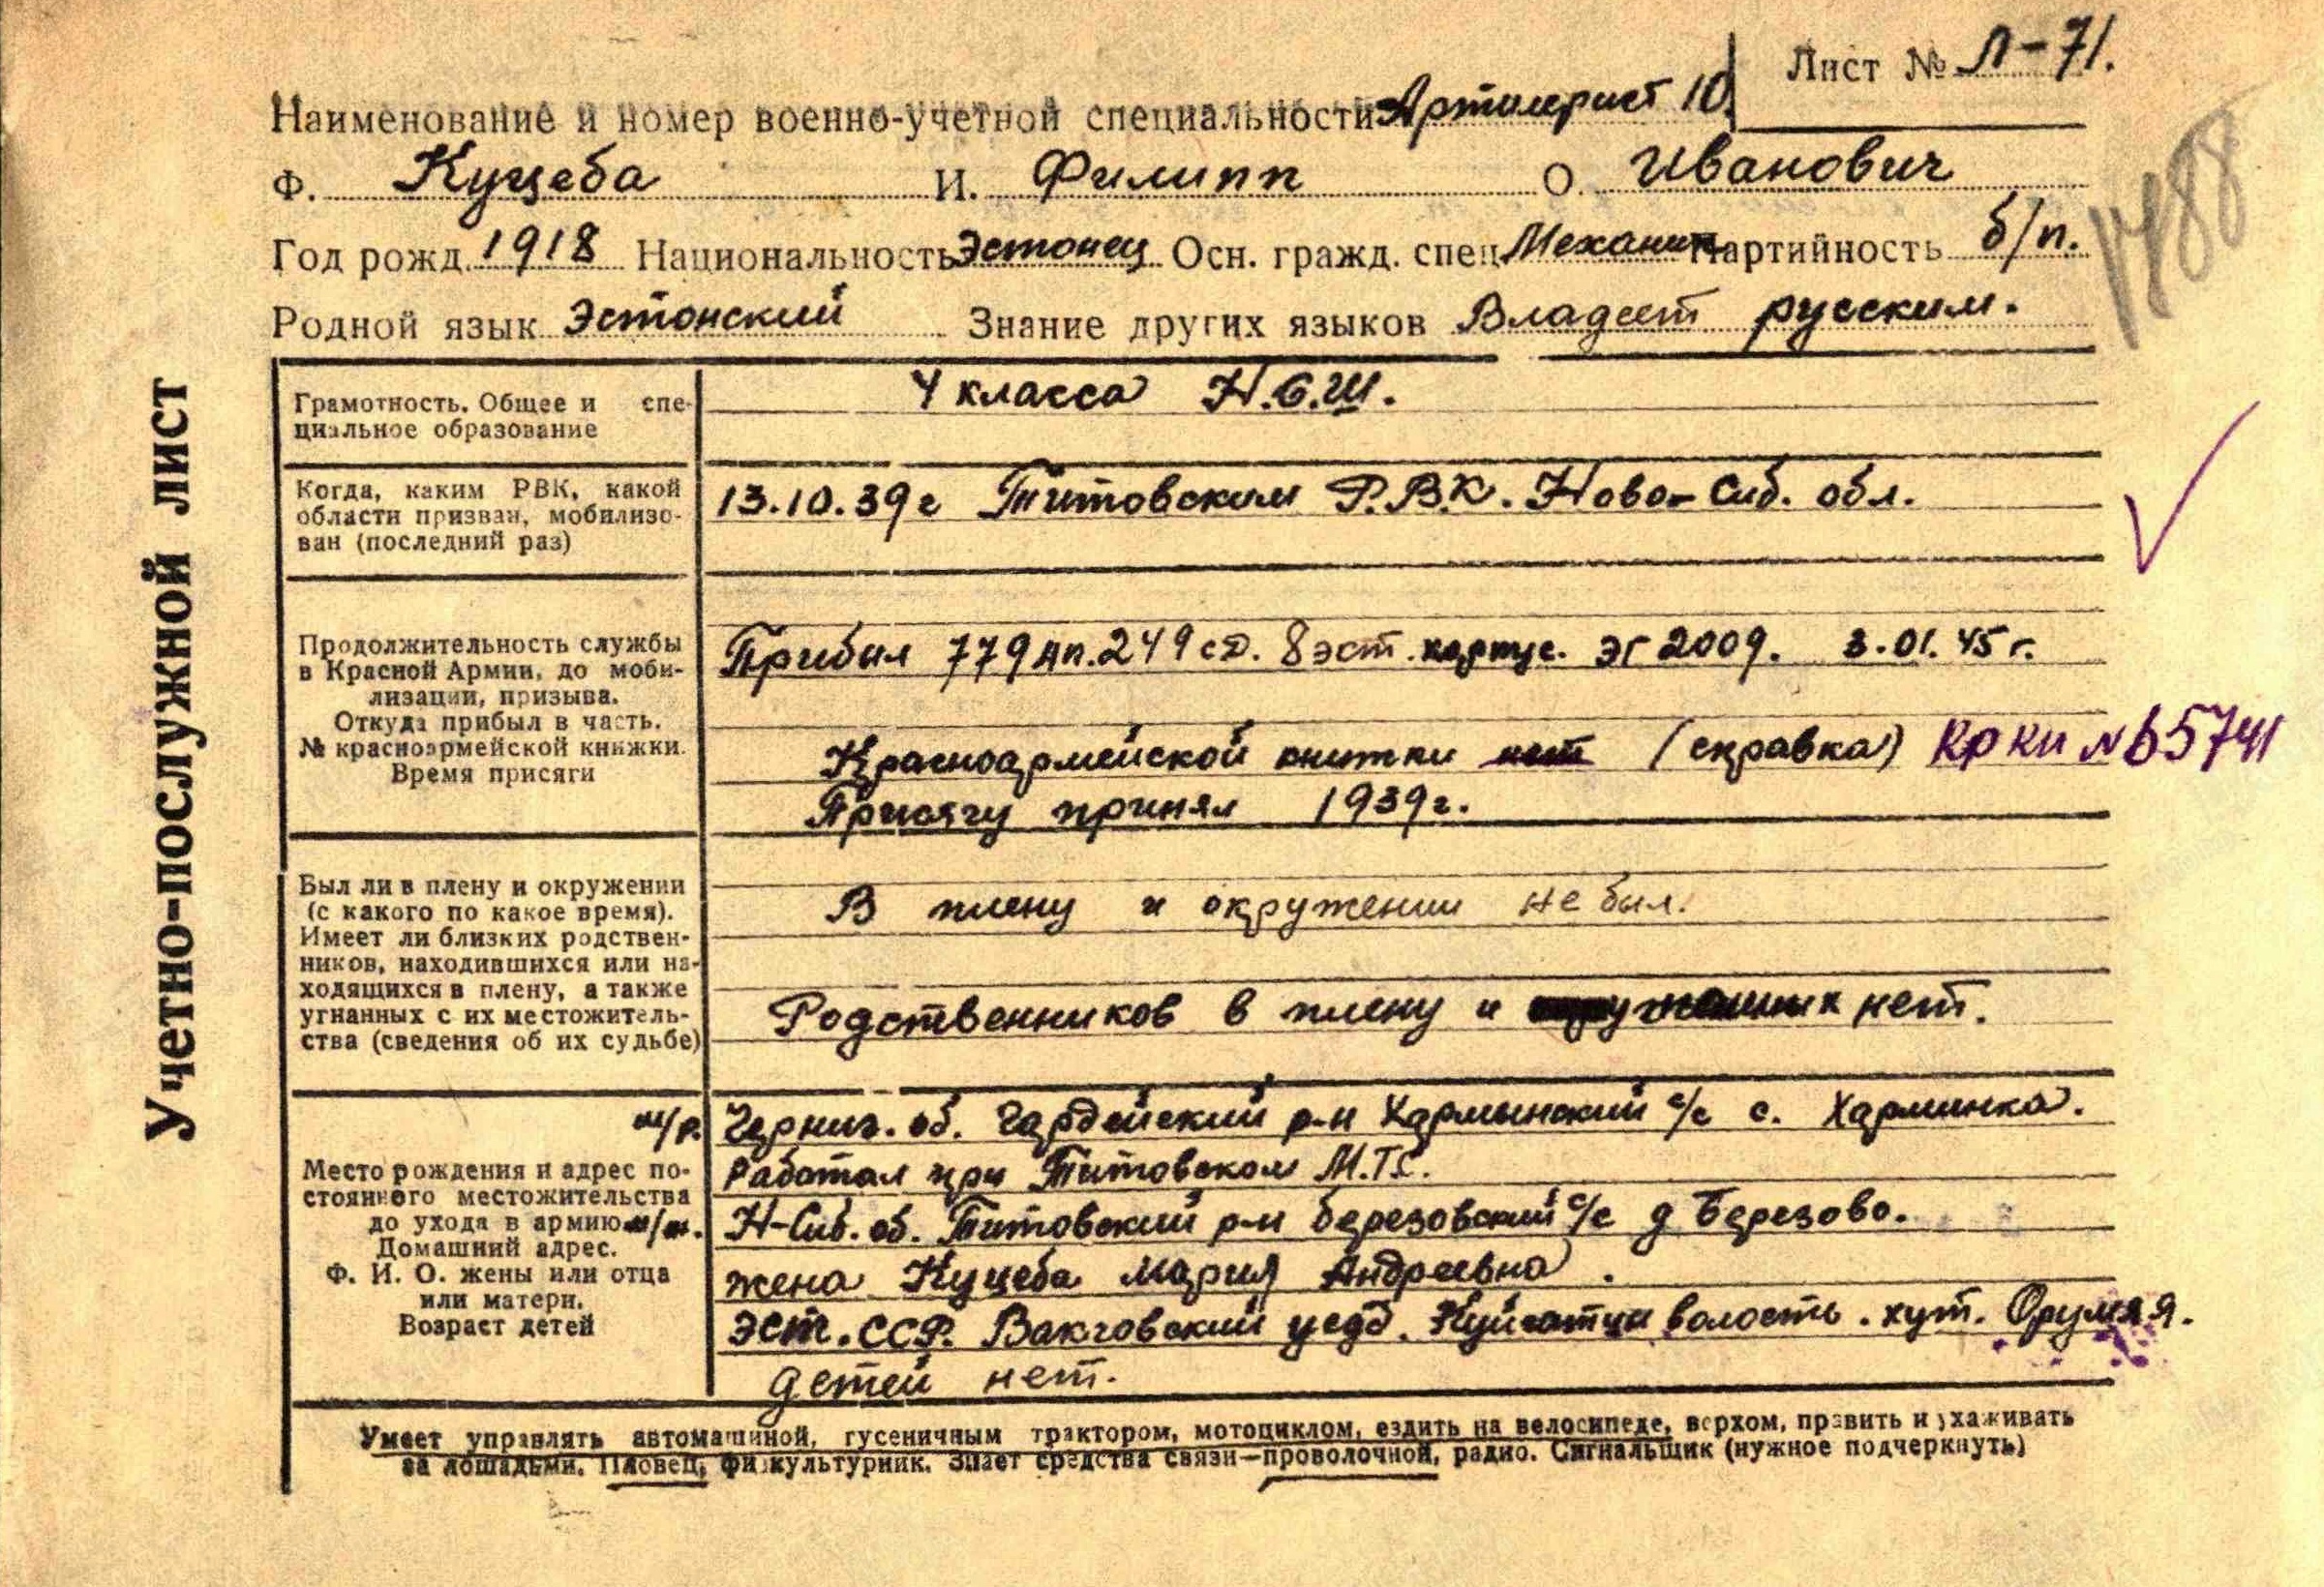 Лист № Л-71.
Наименование и номер военно-учетной специальности Артилерист 10
Ф. Куцеба И. Филипп О. Иванович
1488
Год рожд. 1918 Национальность Эстонец Осн. гражд. спец. Механик Партийность б/п.
Родной язык Эстонский Знание других языков Владеет русским.
Учетно-послужной лист
Грамотность. Общее и специальное образование
4 класса Н.С.Ш.
Когда, каким РВК, какой
области призван, мобилизо-
ван (последний раз)
13.10.39г Титовским Р.В.К. Ново-Сиб. обл.
Продолжительность службы
в Красной Армии, до моби-
лизации, призыва.
Откуда прибыл в часть.
№ красноармейской книжки.
Время присяги
Прибыл 779 ап. 249 сд. 8 эст. корпус. ЭГ 2009. 3.01.45 г.
Красноармейской книжки нет (справка) Кр кн №
Присягу принял 1939г.
Был ли в плену и окружении
(с какого по какое время).
Имеет ли близких родствен-
ников, находившихся или на-
ходящихся в плену, а также
угнанных с их местожитель-
ства (сведения об их судьбе)
В плену и окружении не был.
Родственников в плену и нет.
Место рождения и адрес по-
стоянного местожительства
до ухода в армию м/ж.
Домашний адрес.
Ф. И. О. жены или отца
или матери.
Возраст детей
м/р. Черниг. об. р-н с/с с. Харминка.
Работал при Титовском М.Т.С.
Н-Сиб. об. Титовский р-н Березовский с/с д Березово.
жена Куцеба Мария Андреевна.
Эст. ССР. уезд. волость. хут.
детей нет.
Умеет управлять автомашиной, гусеничным трактором, мотоциклом, ездить на велосипеде, верхом, править и ухаживать
за лошадьми. Пловец, физкультурник. Знает средства связи—проволочной, радио. Сигнальщик (нужное подчеркнуть)